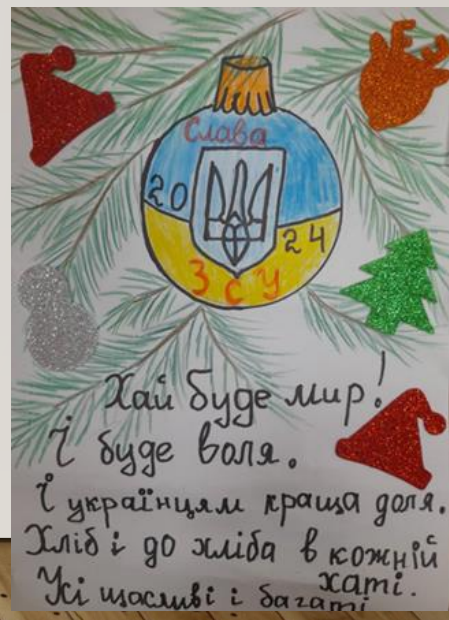 Слава
20 24
ЗСУ
Хай буде мир!
І буде воля.
І українцям краща доля.
Хліб і до хліба в кожній
хаті.
Усі щасливі і багаті